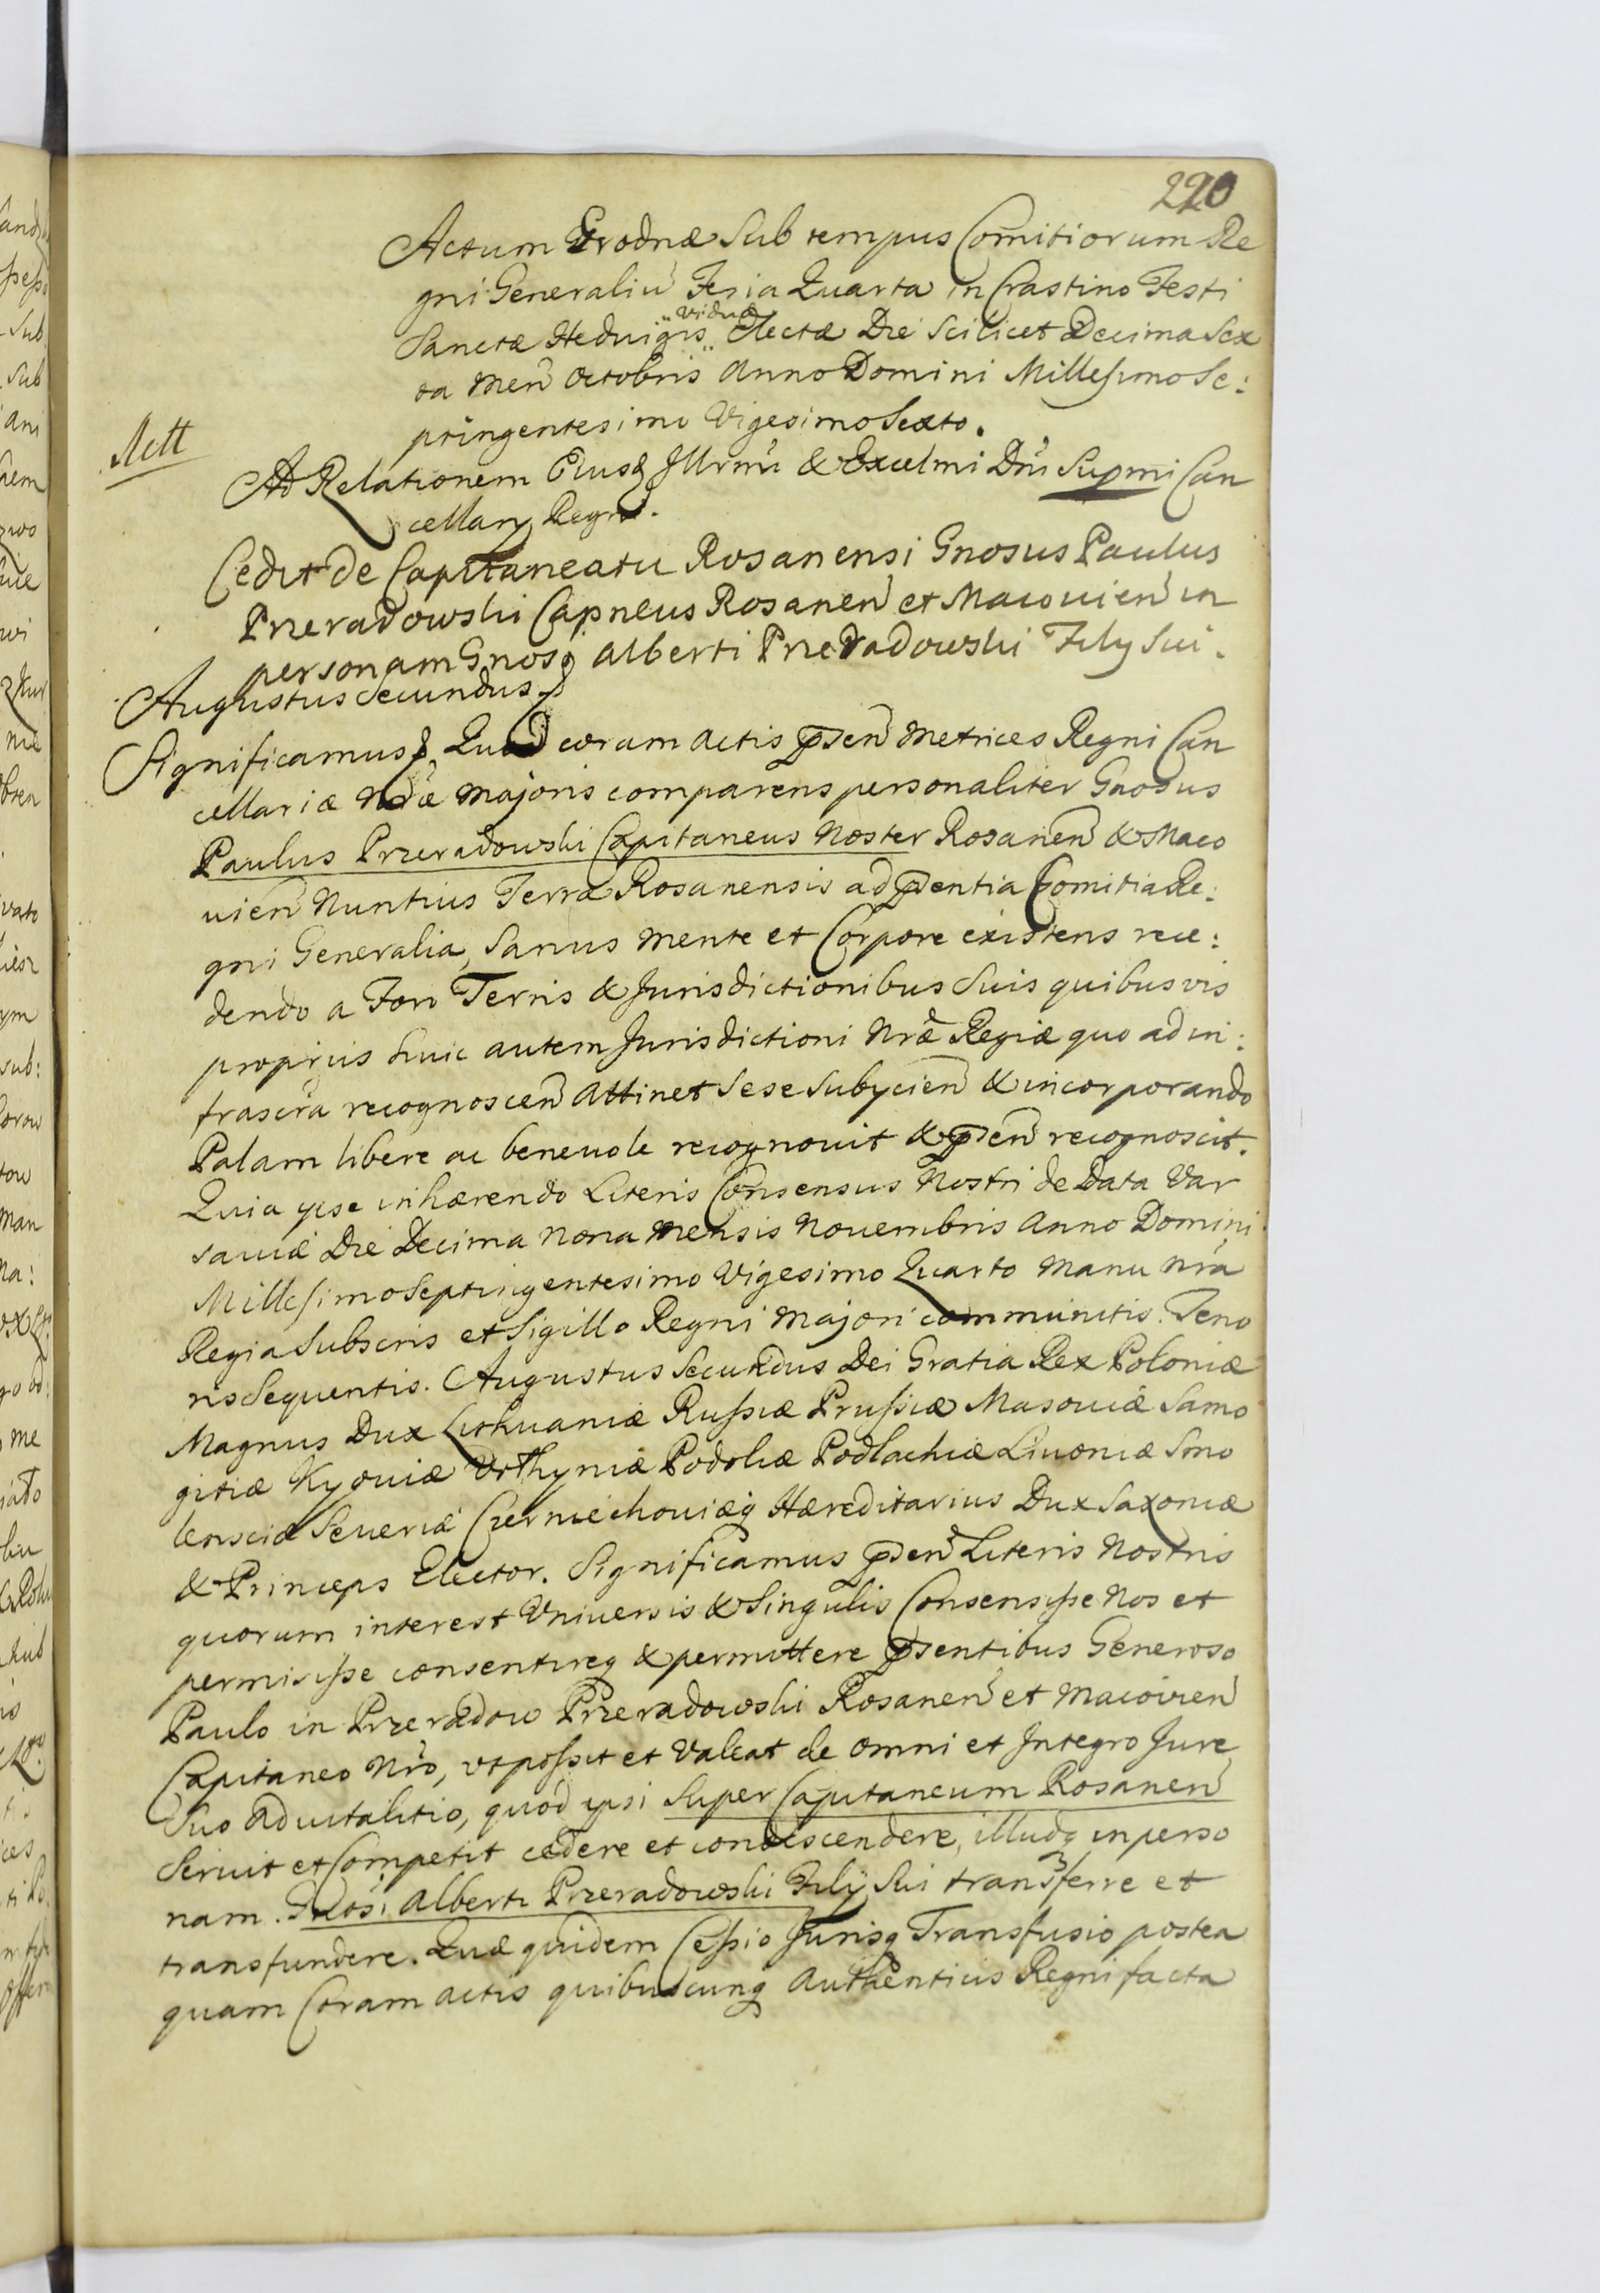 220
Actum Grodnæ Sub tempus Comitiorum Re
gni Generaliu Feria Quarta in Crastino Festi
Sanctæ Heduigis Viduæ Electæ Die Scilicet Decima Sex
ta Men Octobris Anno Domini Millesimo Se:
ptingentesimo Vigesimo Sexto.
Ad Relationem Eiusq Illrmi & Excelmi Dni Supmi Can
cellarij Regni.
Cedit de Capitaneatu Rosanensi Gnosus Paulus
Przeradowski Capneus Rosanen et Macouien in
personam Gnosi Alberti Przeradowski Filij Sui.
Augustus Secundus
Significamus Quod coram Actis psen Metrices Regni Can
cellariæ Nræ Majoris comparens personaliter Gnosus
Paulus Przeradowski Capitaneus Noster Rosanen & Maco
uien Nuntius Terræ Rosanensis ad psentia Comitia Re:
gni Generalia, Sanus Mente et Corpore existens rece:
dendo a Foro Terris & Jurisdictionibus Suis quibusvis
proprijs huic autem Jurisdictioni Nræ Regiæ quo ad in:
frascra recognoscen Attinet Sese Subycien & incorporando
Palam libere ac beneuole recognouit & psen recognoscit.
Quia ipse inhærendo Literis Consensus Nostri de Data Var
sauiæ Die Decima Nona Mensis Nouembris Anno Domini
Millesimo Septingentesimo Vigesimo Quarto Manu Nra
Regia Subscris et Sigillo Regni Majori communitis. Teno
ris Sequentis. Augustus Secundus Dei Gratia Rex Poloniæ
Magnus Dux Lithuaniæ Russiæ Prussiæ Masouiæ Samo
gitiæ Kyouiæ Volhyniæ Podoliæ Podlachiæ Liuoniæ Smo
lensciæ Seueriæ Czerniechouiæq Hæreditarius Dux Saxoniæ
& Princeps Elector. Significamus psen Literis Nostris
quorum interest Vniuersis & Singulis Consensisse Nos et
permisisse consentireq & permittere psentibus Generoso
Paulo in Przeradow Przeradowski Rosanen et Macouien
Capitaneo Nro, vt possit et Valeat de omni et Integro Jure
Suo aduitalitio, quod ipsi Super Capitaneum Rosanen
Seruit et Competit cedere et condescendere, illudq in perso
nam Gnosi Alberti Przeradowski Filij Sui transferre et
transfundere. Quæ quidem Cessio Jurisq Transfusio postea
quam Coram actis quibuscunq Authenticis Regni facta